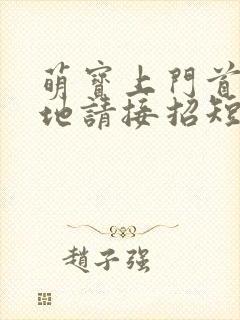 萌寶上門首
地請接招短
趙子強